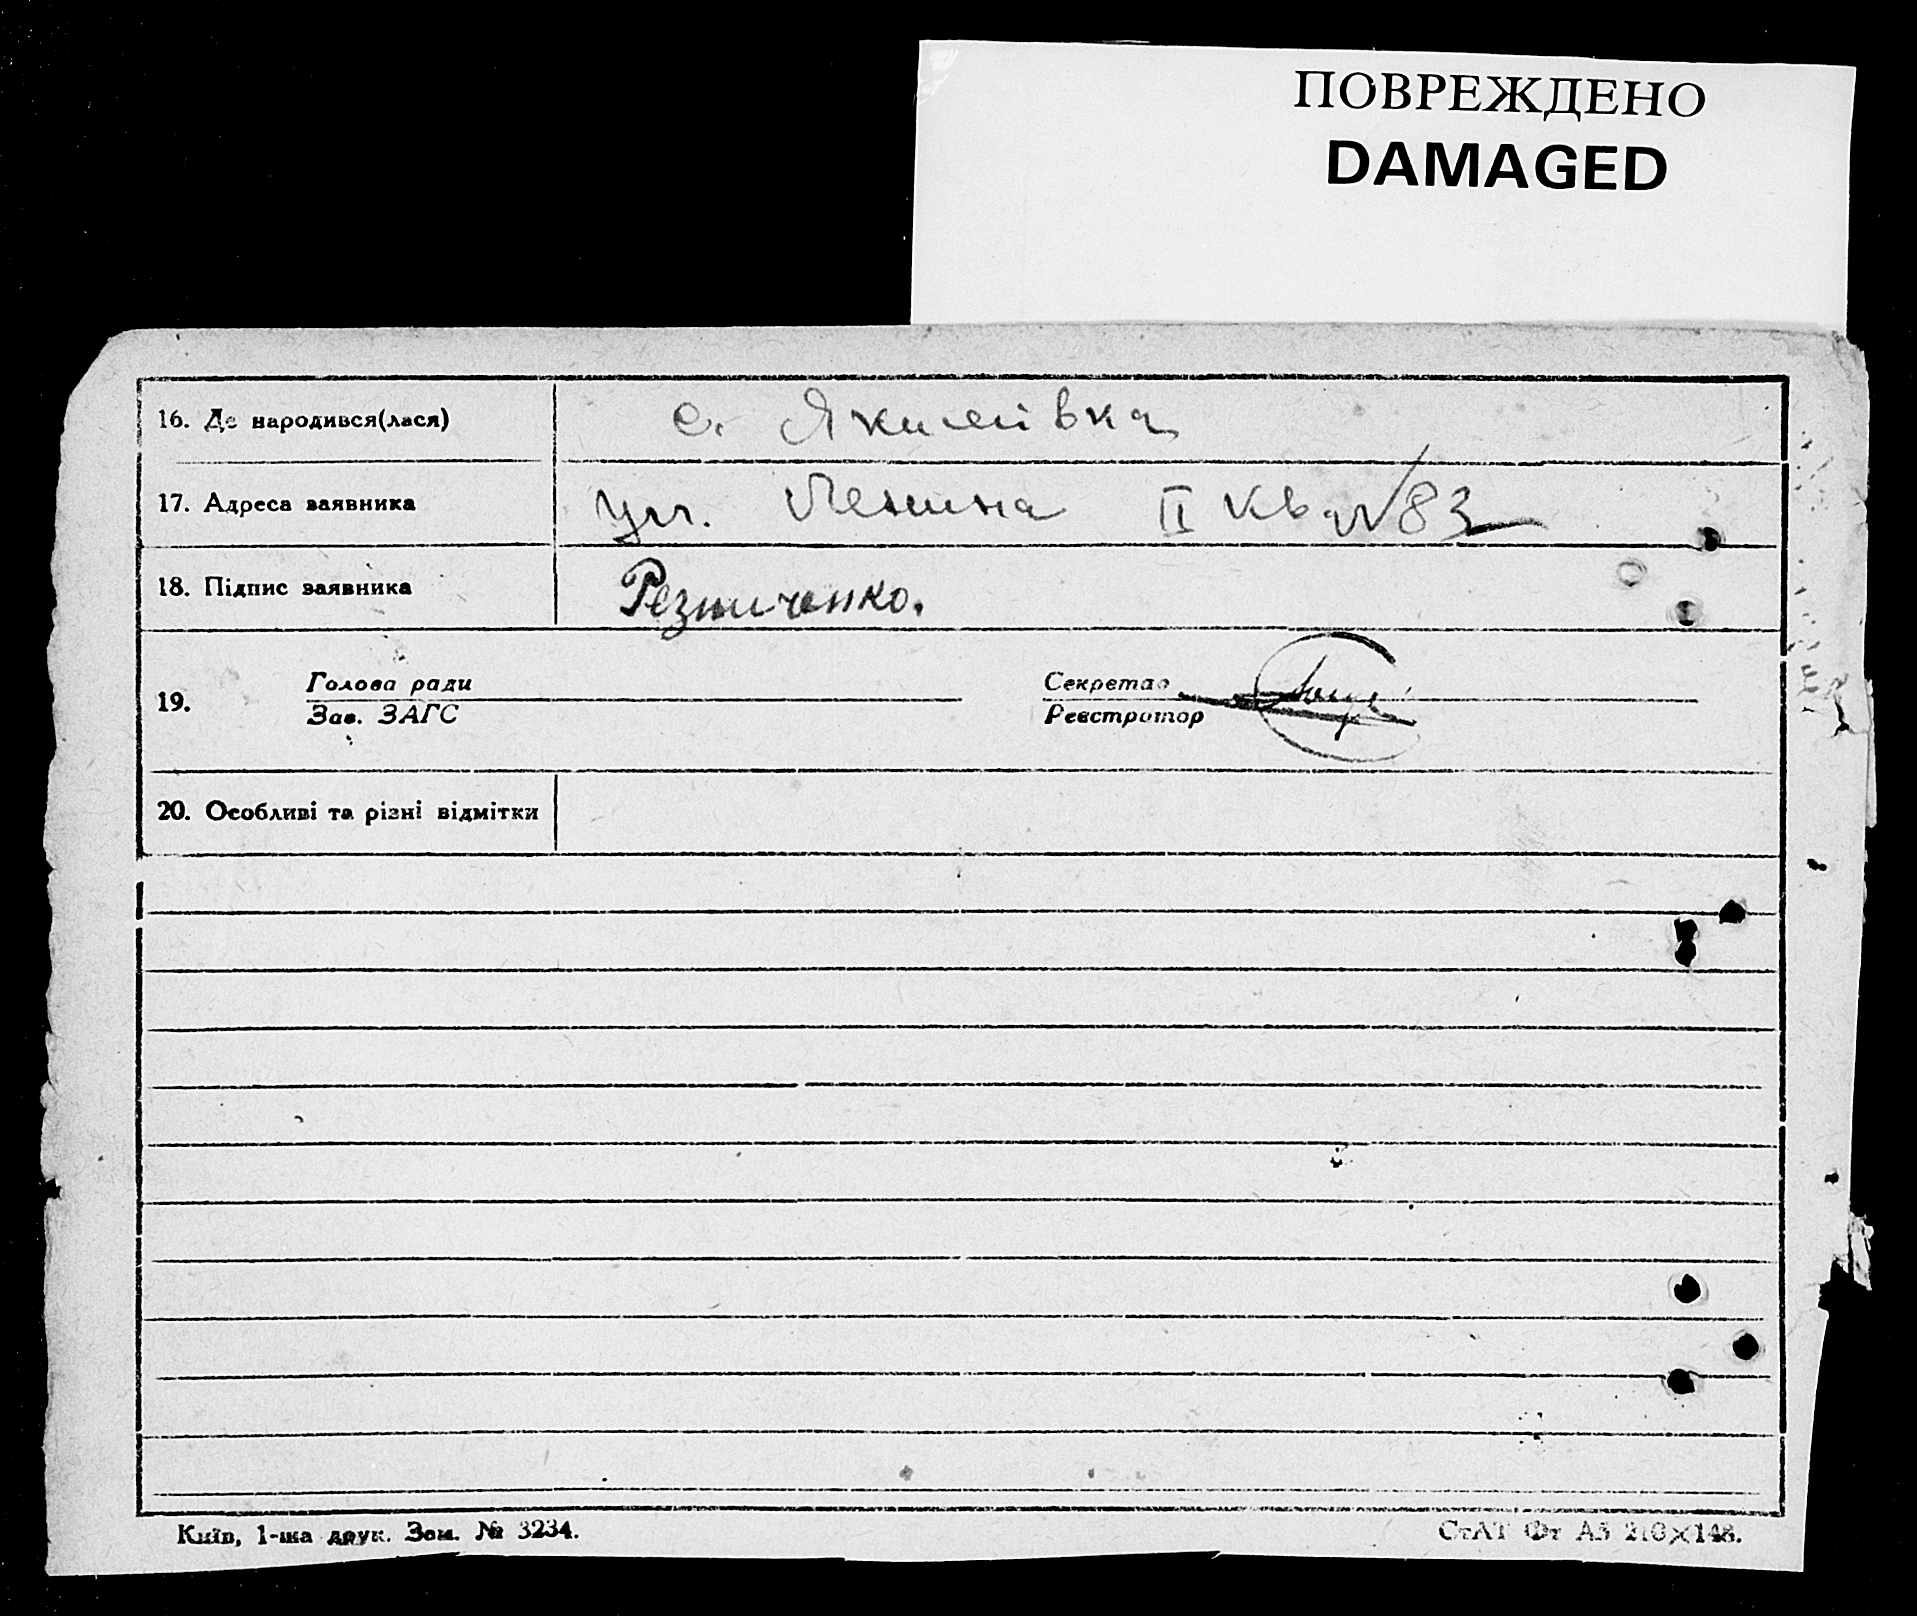 ПОВРЕЖДЕНО
DAMAGED
16. Де народився(лася) с. Якимівка
17. Адреса заявника ул. Ленина II кв. №83
18. Підпис заявника Резниченко.
19. Голова ради Секретар
Зав. ЗАГС Реєстратор
20. Особливі та різні відмітки
Київ, 1-ша друк. Зам. № 3234. СтАТ Фт А5 210×148.